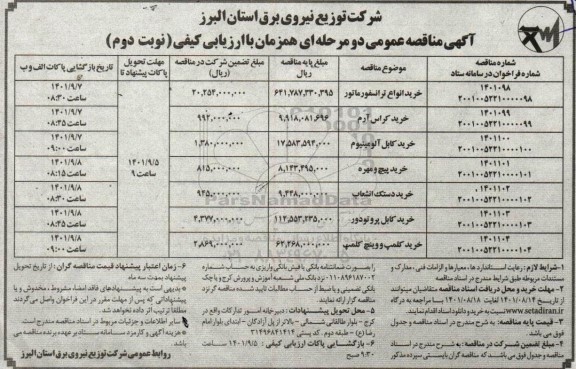 شرکت توزیع نیروی برق استان البرز
آگهی مناقصه عمومی دو مرحله‌ای همزمان با ارزیابی کیفی (نوبت دوم)
شماره مناقصه
شماره فراخوان در سامانه ستاد
موضوع مناقصه
مبلغ پایه مناقصه
ریال
مبلغ تضمین شرکت در مناقصه
(ریال)
مهلت تحویل
پاکات پیشنهاد تا
تاریخ بازگشایی پاکات الف و ب
۱۴۰۱۰۹۸
۲۰۰۱۰۰۵۲۲۱۰۰۰۰۹۸
خرید انواع ترانسفورماتور
۶۴۱,۷۸۷,۳۳۰,۳۹۵
۲۰,۲۵۴,۰۰۰,۰۰۰
۱۴۰۱/۹/۵
ساعت ۹
۱۴۰۱/۹/۷
ساعت ۰۸:۳۰
۱۴۰۱۰۹۹
۲۰۰۱۰۰۵۲۲۱۰۰۰۰۹۹
خرید کراس آرم
۹,۹۱۸,۰۸۱,۶۹۶
۹۹۲,۰۰۰,۰۰۰
۱۴۰۱/۹/۷
ساعت ۰۸:۴۵
۱۴۰۱۱۰۰
۲۰۰۱۰۰۵۲۲۱۰۰۰۱۰۰
خرید کابل آلومینیوم
۱۷,۵۸۳,۵۹۴,۰۰۰
۱,۳۸۰,۰۰۰,۰۰۰
۱۴۰۱/۹/۷
ساعت ۰۹:۰۰
۱۴۰۱۱۰۱
۲۰۰۱۰۰۵۲۲۱۰۰۰۱۰۱
خرید پیچ و مهره
۸,۱۴۳,۴۹۵,۰۰۰
۸۱۵,۰۰۰,۰۰۰
۱۴۰۱/۹/۸
ساعت ۰۸:۱۵
۱۴۰۱۱۰۲
۲۰۰۱۰۰۵۲۲۱۰۰۰۱۰۲
خرید دستک انشعاب
۹,۴۴۸,۰۰۰,۰۰۰
۹۴۵,۰۰۰,۰۰۰
۱۴۰۱/۹/۸
ساعت ۰۸:۳۰
۱۴۰۱۱۰۳
۲۰۰۱۰۰۵۲۲۱۰۰۰۱۰۳
خرید کابل پروتودور
۱۱۴,۵۵۳,۲۳۵,۰۰۰
۴,۳۷۷,۰۰۰,۰۰۰
۱۴۰۱/۹/۸
ساعت ۰۸:۴۵
۱۴۰۱۱۰۴
۲۰۰۱۰۰۵۲۲۱۰۰۰۱۰۴
خرید کلمپ و وینچ کلمپی
۶۲,۲۶۸,۰۰۰,۰۰۰
۲,۸۶۹,۰۰۰,۰۰۰
۱۴۰۱/۹/۸
ساعت ۰۹:۰۰
ParsNamadData
۱-شرایط لازم: رعایت استانداردها، معیارها و الزامات فنی، مدارک و
مستندات مربوطه طبق شرایط مندرج در اسناد مناقصه
۲- مهلت خرید و محل دریافت اسناد مناقصه: متقاضیان میتوانند
از تاریخ ۱۴۰۱/۰۸/۱۴ لغایت ۱۴۰۱/۰۸/۱۸ با مراجعه به درگاه
www.setadiran.ir نسبت به خرید و دانلود اسناد اقدام نمایند.
۳- قیمت پایه مناقصه: به شرح مندرج در اسناد مناقصه و جدول
فوق می باشد
۴- مبلغ تضمین شرکت در مناقصه: به شرح مندرج در اسناد
مناقصه و جدول فوق می باشد که مناقصه گران بایستی سپرده مذکور
را بصورت ضمانتنامه بانکی یا فیش بانکی واریزی به حساب شماره
نزد بانک ملی شعبه آموزش و پرورش کرج و یا چک
بانکی تضمینی و یا ضبط از حساب مطالبات تایید شده مناقصه گر نزد
مناقصه گزار ارائه نمایند.
۵- محل تحویل پیشنهادات: دبیرخانه امور تدارکات واقع در
کرج - بلوار طالقانی شمالی - بالاتر از پل آزادگان - ابتدای بلوار امام
رضا (ع) - طبقه دوم. کد پستی ۳۱۴۹۶۸۴۱۴۱۴
۶- بازگشایی پاکات ارزیابی کیفی: ۱۴۰۱/۹/۵ ساعت
۹:۳۰ صبح
۶- زمان اعتبار پیشنهاد قیمت مناقصه گران: از تاریخ تحویل
پیشنهاد بمدت سه ماه
* بدیهی است به پیشنهادهای فاقد امضا، مشروط، مخدوش و یا
پیشنهاداتی که پس از مهلت مقرر در این فراخوان واصل می گردند
مطلقا ترتیب اثر داده نخواهد شد.
* سایر اطلاعات و جزئیات مربوط در اسناد مناقصه مندرج است
* هزینه آگهی و کارمزد سامانه ستاد بر عهده برنده مناقصه می باشد
روابط عمومی شرکت توزیع نیروی برق استان البرز